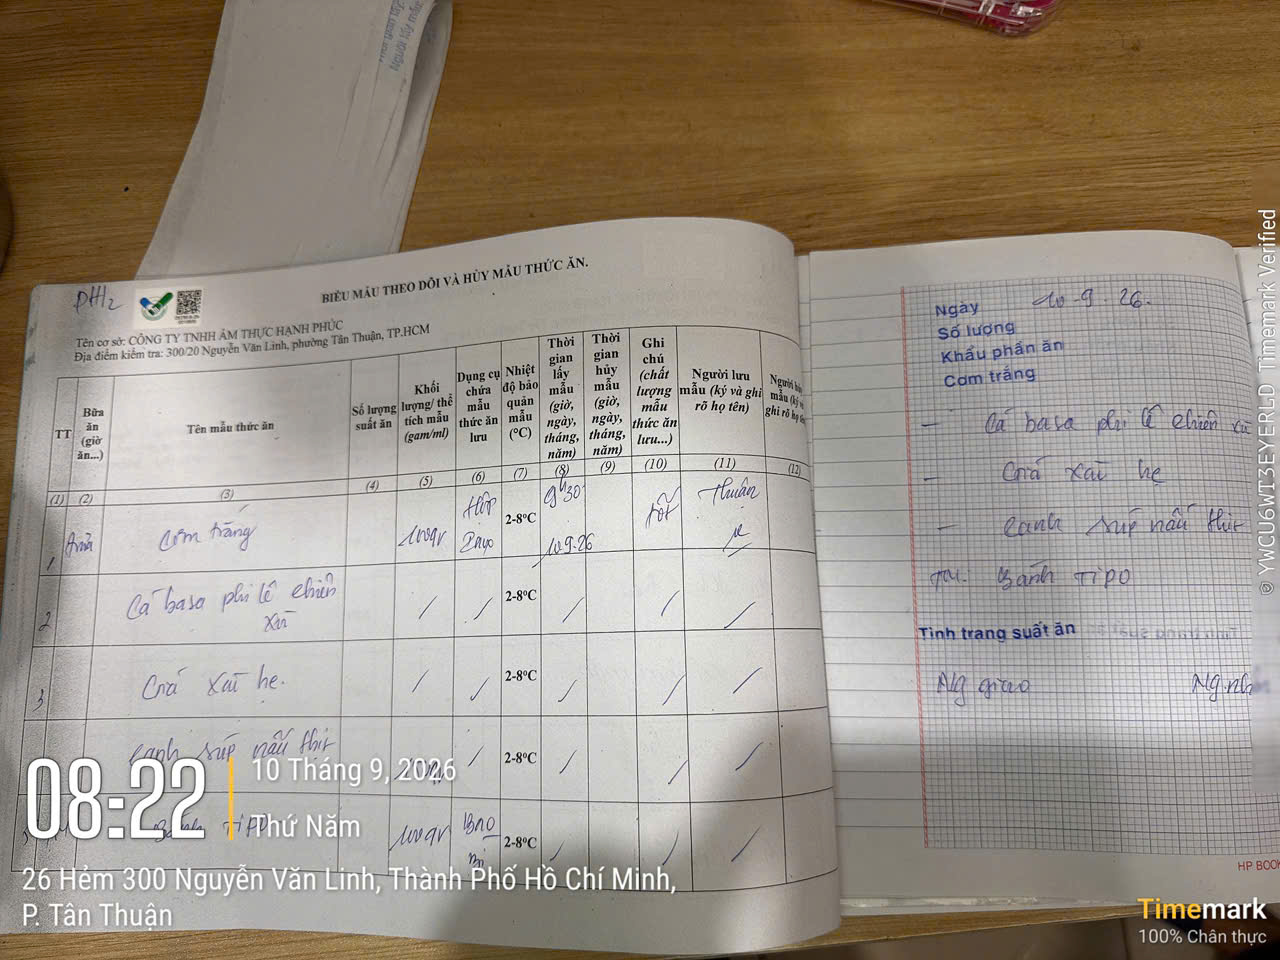 Thời gian lấy
Người lấy mẫu
PH2
BIỂU MẪU THEO DÕI VÀ HỦY MẪU THỨC ĂN.
Tên cơ sở: CÔNG TY TNHH ẨM THỰC HẠNH PHÚC
Địa điểm kiểm tra: 300/20 Nguyễn Văn Linh, phường Tân Thuận, TP.HCM
TT
Bữa ăn (giờ ăn...)
Tên mẫu thức ăn
Số lượng suất ăn
Khối lượng/ thể tích mẫu (gam/ml)
Dụng cụ chứa mẫu thức ăn lưu
Nhiệt độ bảo quản mẫu (°C)
Thời gian lấy mẫu (giờ, ngày, tháng, năm)
Thời gian hủy mẫu (giờ, ngày, tháng, năm)
Ghi chú (chất lượng mẫu thức ăn lưu...)
Người lưu mẫu (ký và ghi rõ họ tên)
mẫu (ký
ghi rõ họ
(1) (2) (3) (4) (5) (6) (7) (8) (9) (10) (11) (12)
1 Cơm trắng 100gr Hộp Inox 2-8°C 9h30 10.9.26 tốt Thuân
2 Cá basa phi lê chiên xù / / 2-8°C / / /
3 Giá xào hẹ. / / 2-8°C / / /
canh súp nấu thịt / 2-8°C / / /
Bánh TIPO 100gr Bao bì 2-8°C / / /
Ngày 10-9-26.
Số lượng
Khẩu phần ăn
Cơm trắng
- Cá basa phi lê chiên xù
- Giá xào hẹ
- canh súp nấu thịt
TM: Bánh TIPO
Tình trạng suất ăn
Ng giao
HP BOOK
08:22
10 Tháng 9, 2026
Thứ Năm
26 Hẻm 300 Nguyễn Văn Linh, Thành Phố Hồ Chí Minh,
P. Tân Thuận
Timemark
100% Chân thực
© YWCU6WT3EYERLD Timemark Verified